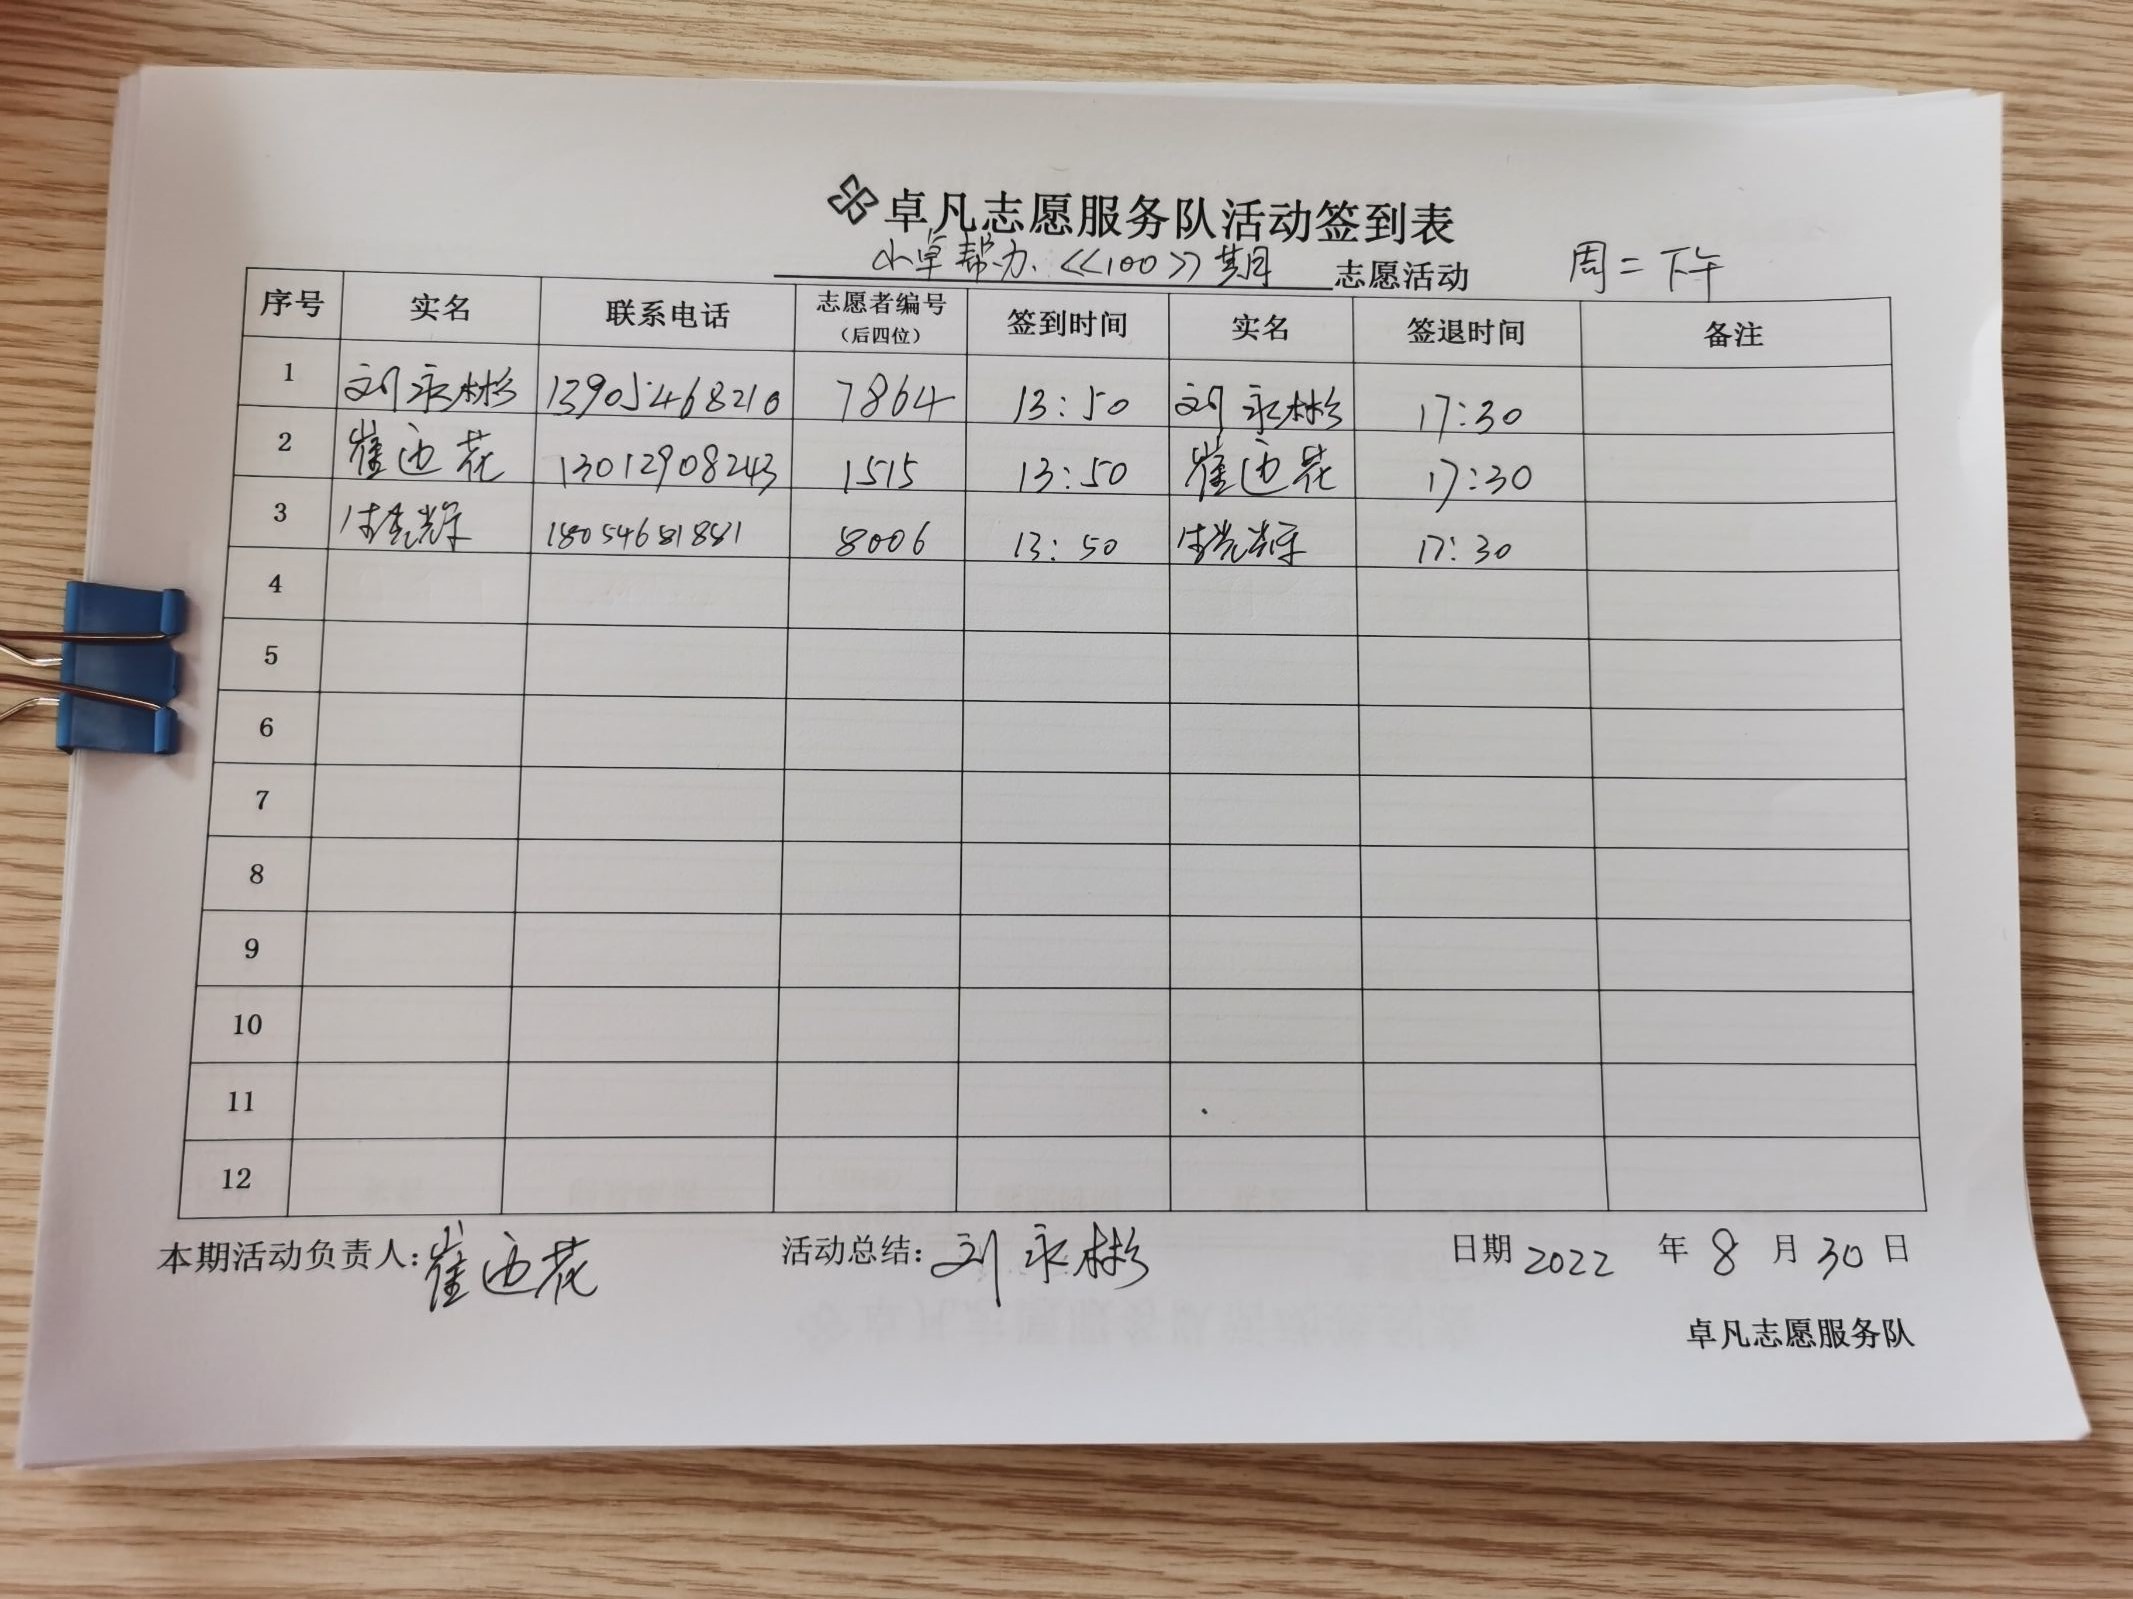 卓凡志愿服务队活动签到表
小卓帮办《100》期 志愿活动 周二下午
序号 实名 联系电话 志愿者编号（后四位） 签到时间 实名 签退时间 备注
1 刘永彬 13905468210 7864 13:50 刘永彬 17:30
2 崔迎花 13012908243 1515 13:50 崔迎花 17:30
3 18054681881 8006 13:50 17:30
4
5
6
7
8
9
10
11
12
本期活动负责人:崔迎花 活动总结:刘永彬 日期 2022 年 8 月 30 日
卓凡志愿服务队